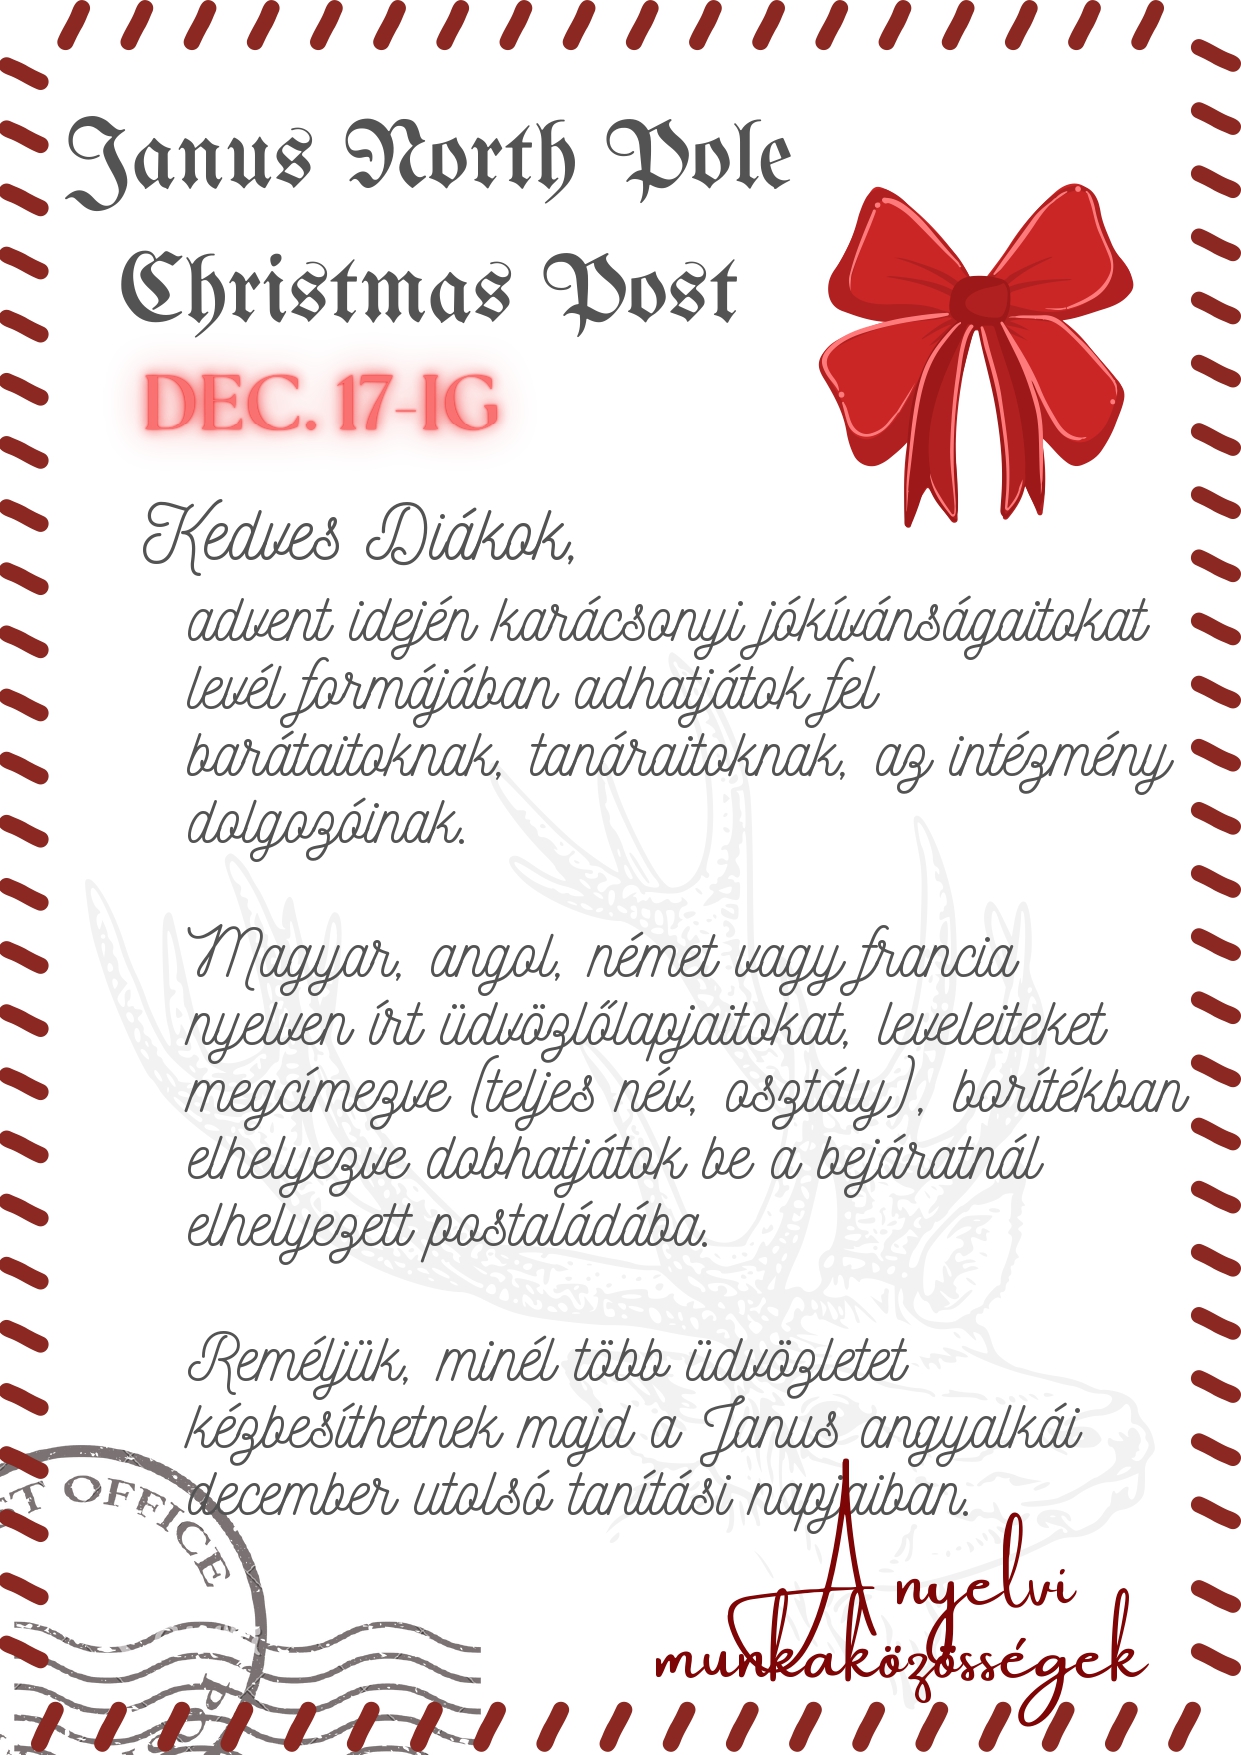 Janus North Pole
Christmas Post
DEC. 17-IG
Kedves Diákok,
advent idején karácsonyi jókívánságaitokat
levél formájában adhatjátok fel
barátaitoknak, tanáraitoknak, az intézmény
dolgozóinak.
Magyar, angol, német vagy francia
nyelven írt üdvözlőlapjaitokat, leveleiteket
megcímezve (teljes név, osztály), borítékban
elhelyezve dobhatjátok be a bejáratnál
elhelyezett postaládába.
Reméljük, minél több üdvözletet
kézbesíthetnek majd a Janus angyalkái
december utolsó tanítási napjaiban.
OFFICE
A nyelvi
munkaközösségek